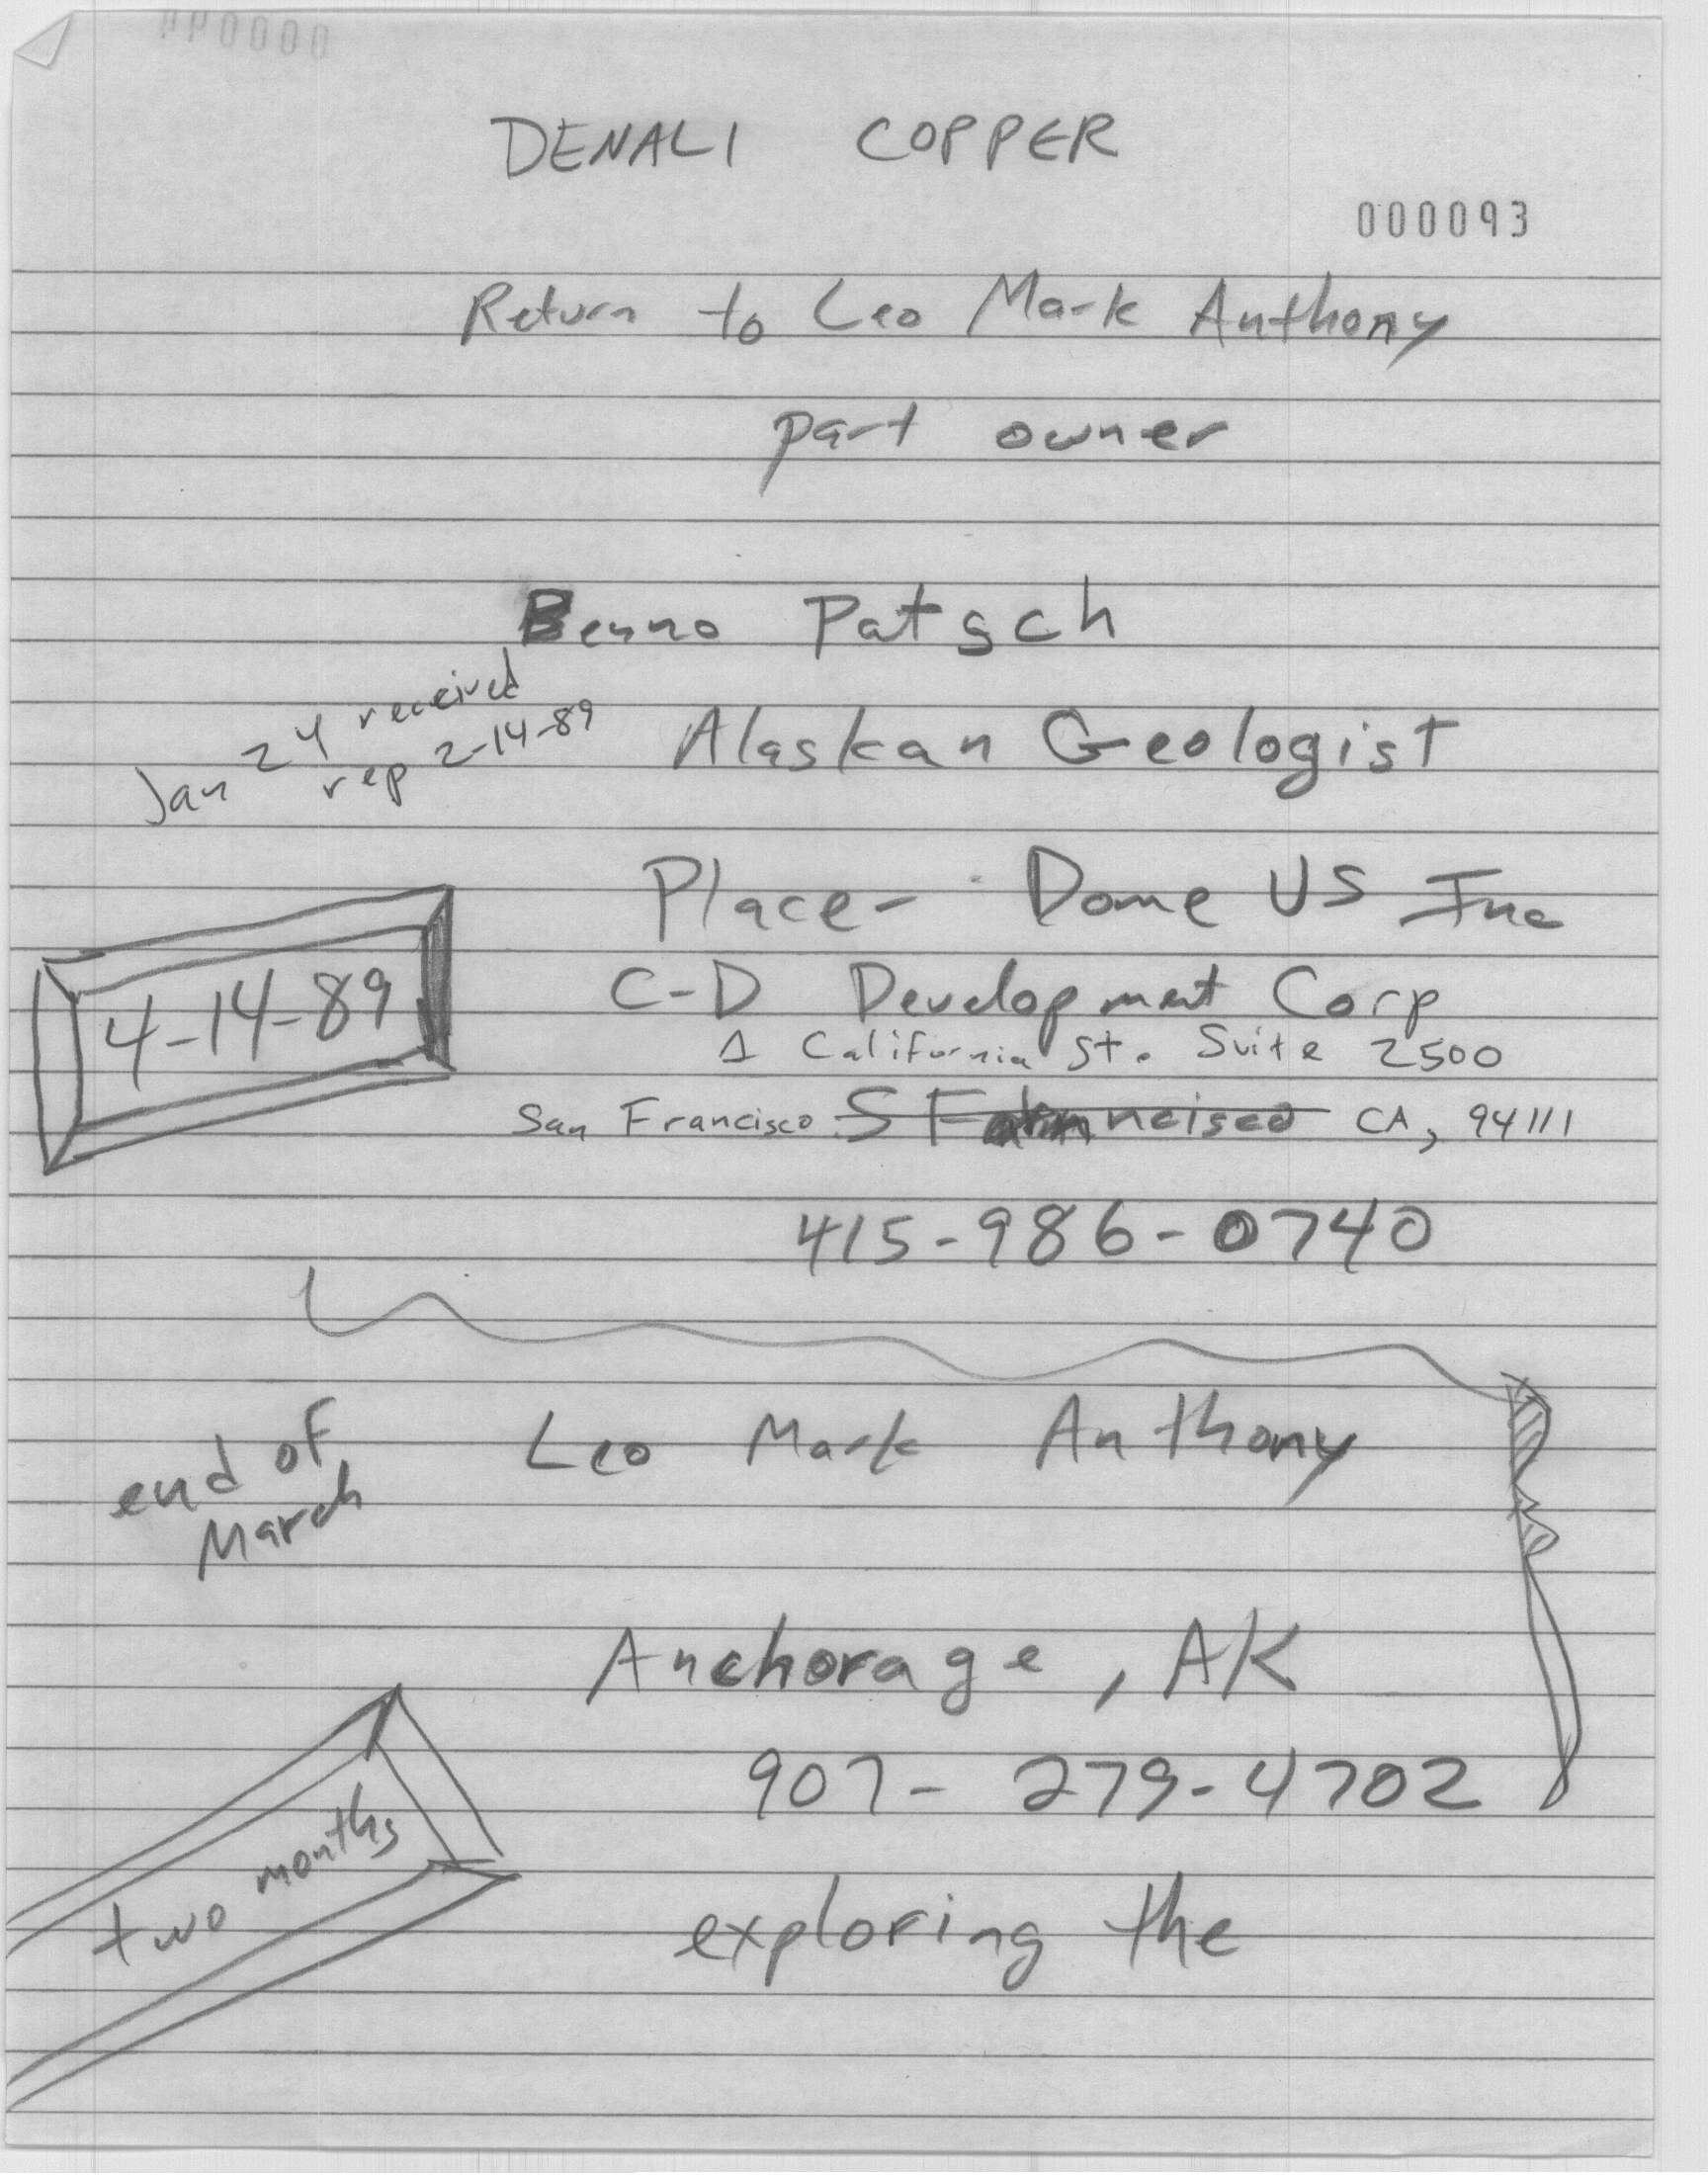 DENALI COPPER
000093
Return to Leo Mark Anthony
part owner
Benno Patsch
Jan 24 received
rep 2-14-89
Alaskan Geologist
Place- Dome US Inc
4-14-89
C-D Development Corp
1 California St. Suite 2500
San Francisco S Francisco CA, 94111
415-986-0740
end of
March
Leo Mark Anthony
Anchorage, AK
907-279-4702
two months
exploring the